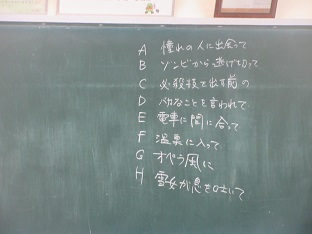 A 憧れの人に出会って
B ゾンビから逃げ切って
C 必殺技を出す前の
D バカなことを言われて
E 電車に間に合って
F 温泉に入って
G オペラ風に
H 雪女が息を吐いて